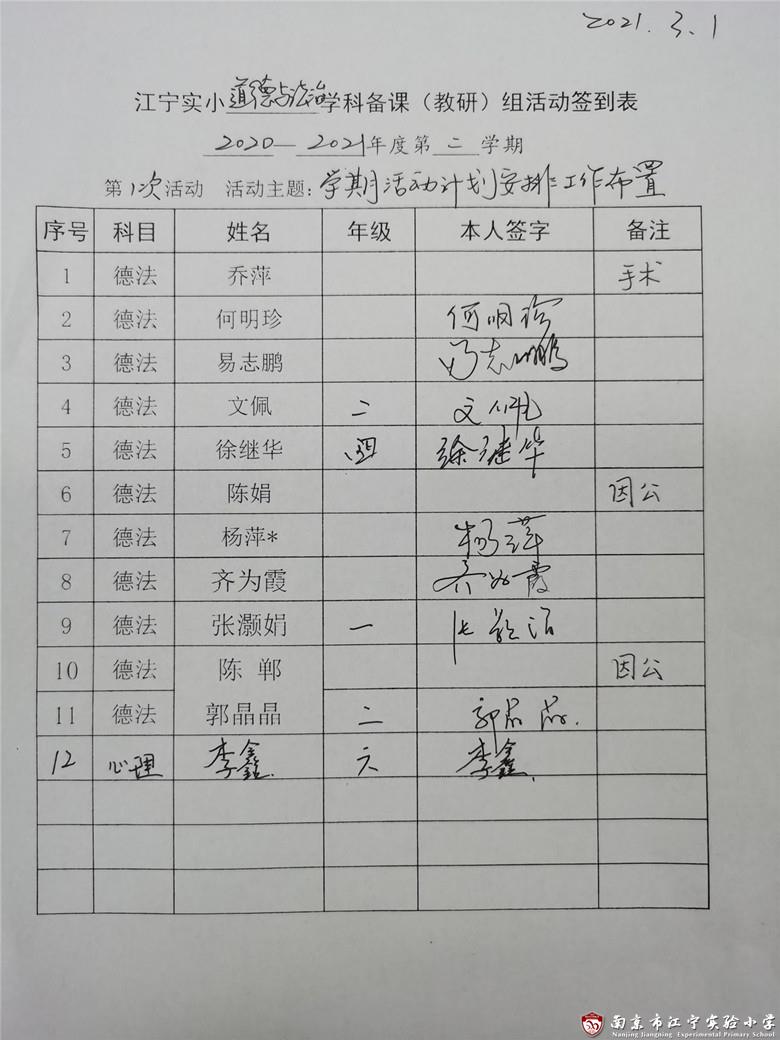 2021.3.1
江宁实小道德与法治学科备课（教研）组活动签到表
2020—2021年度第二学期
第1次活动 活动主题：学期活动计划安排工作布置
序号 科目 姓名 年级 本人签字 备注
1 德法 乔萍 手术
2 德法 何明珍 何明珍
3 德法 易志鹏 易志鹏
4 德法 文佩 二 文佩
5 德法 徐继华 四 徐继华
6 德法 陈娟 因公
7 德法 杨萍* 杨萍
8 德法 齐为霞 齐为霞
9 德法 张灏娟 一
10 德法 陈 郸 因公
11 德法 郭晶晶 二 郭晶晶.
12 心理 李鑫. 六 李鑫.
南京市江宁实验小学
Nanjing Jiangning Experimental Primary School